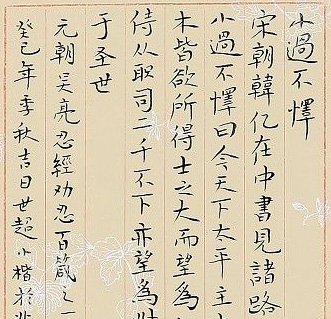 小過不懌
宋朝韓亿在中書見諸路
小過不懌曰今天下太平主
木皆欲所得士之大而望為
侍从职司二千石下亦望為
于圣世
元朝吴亮忍經劝忍百箴之一
癸巳年季秋吉日世超小楷於